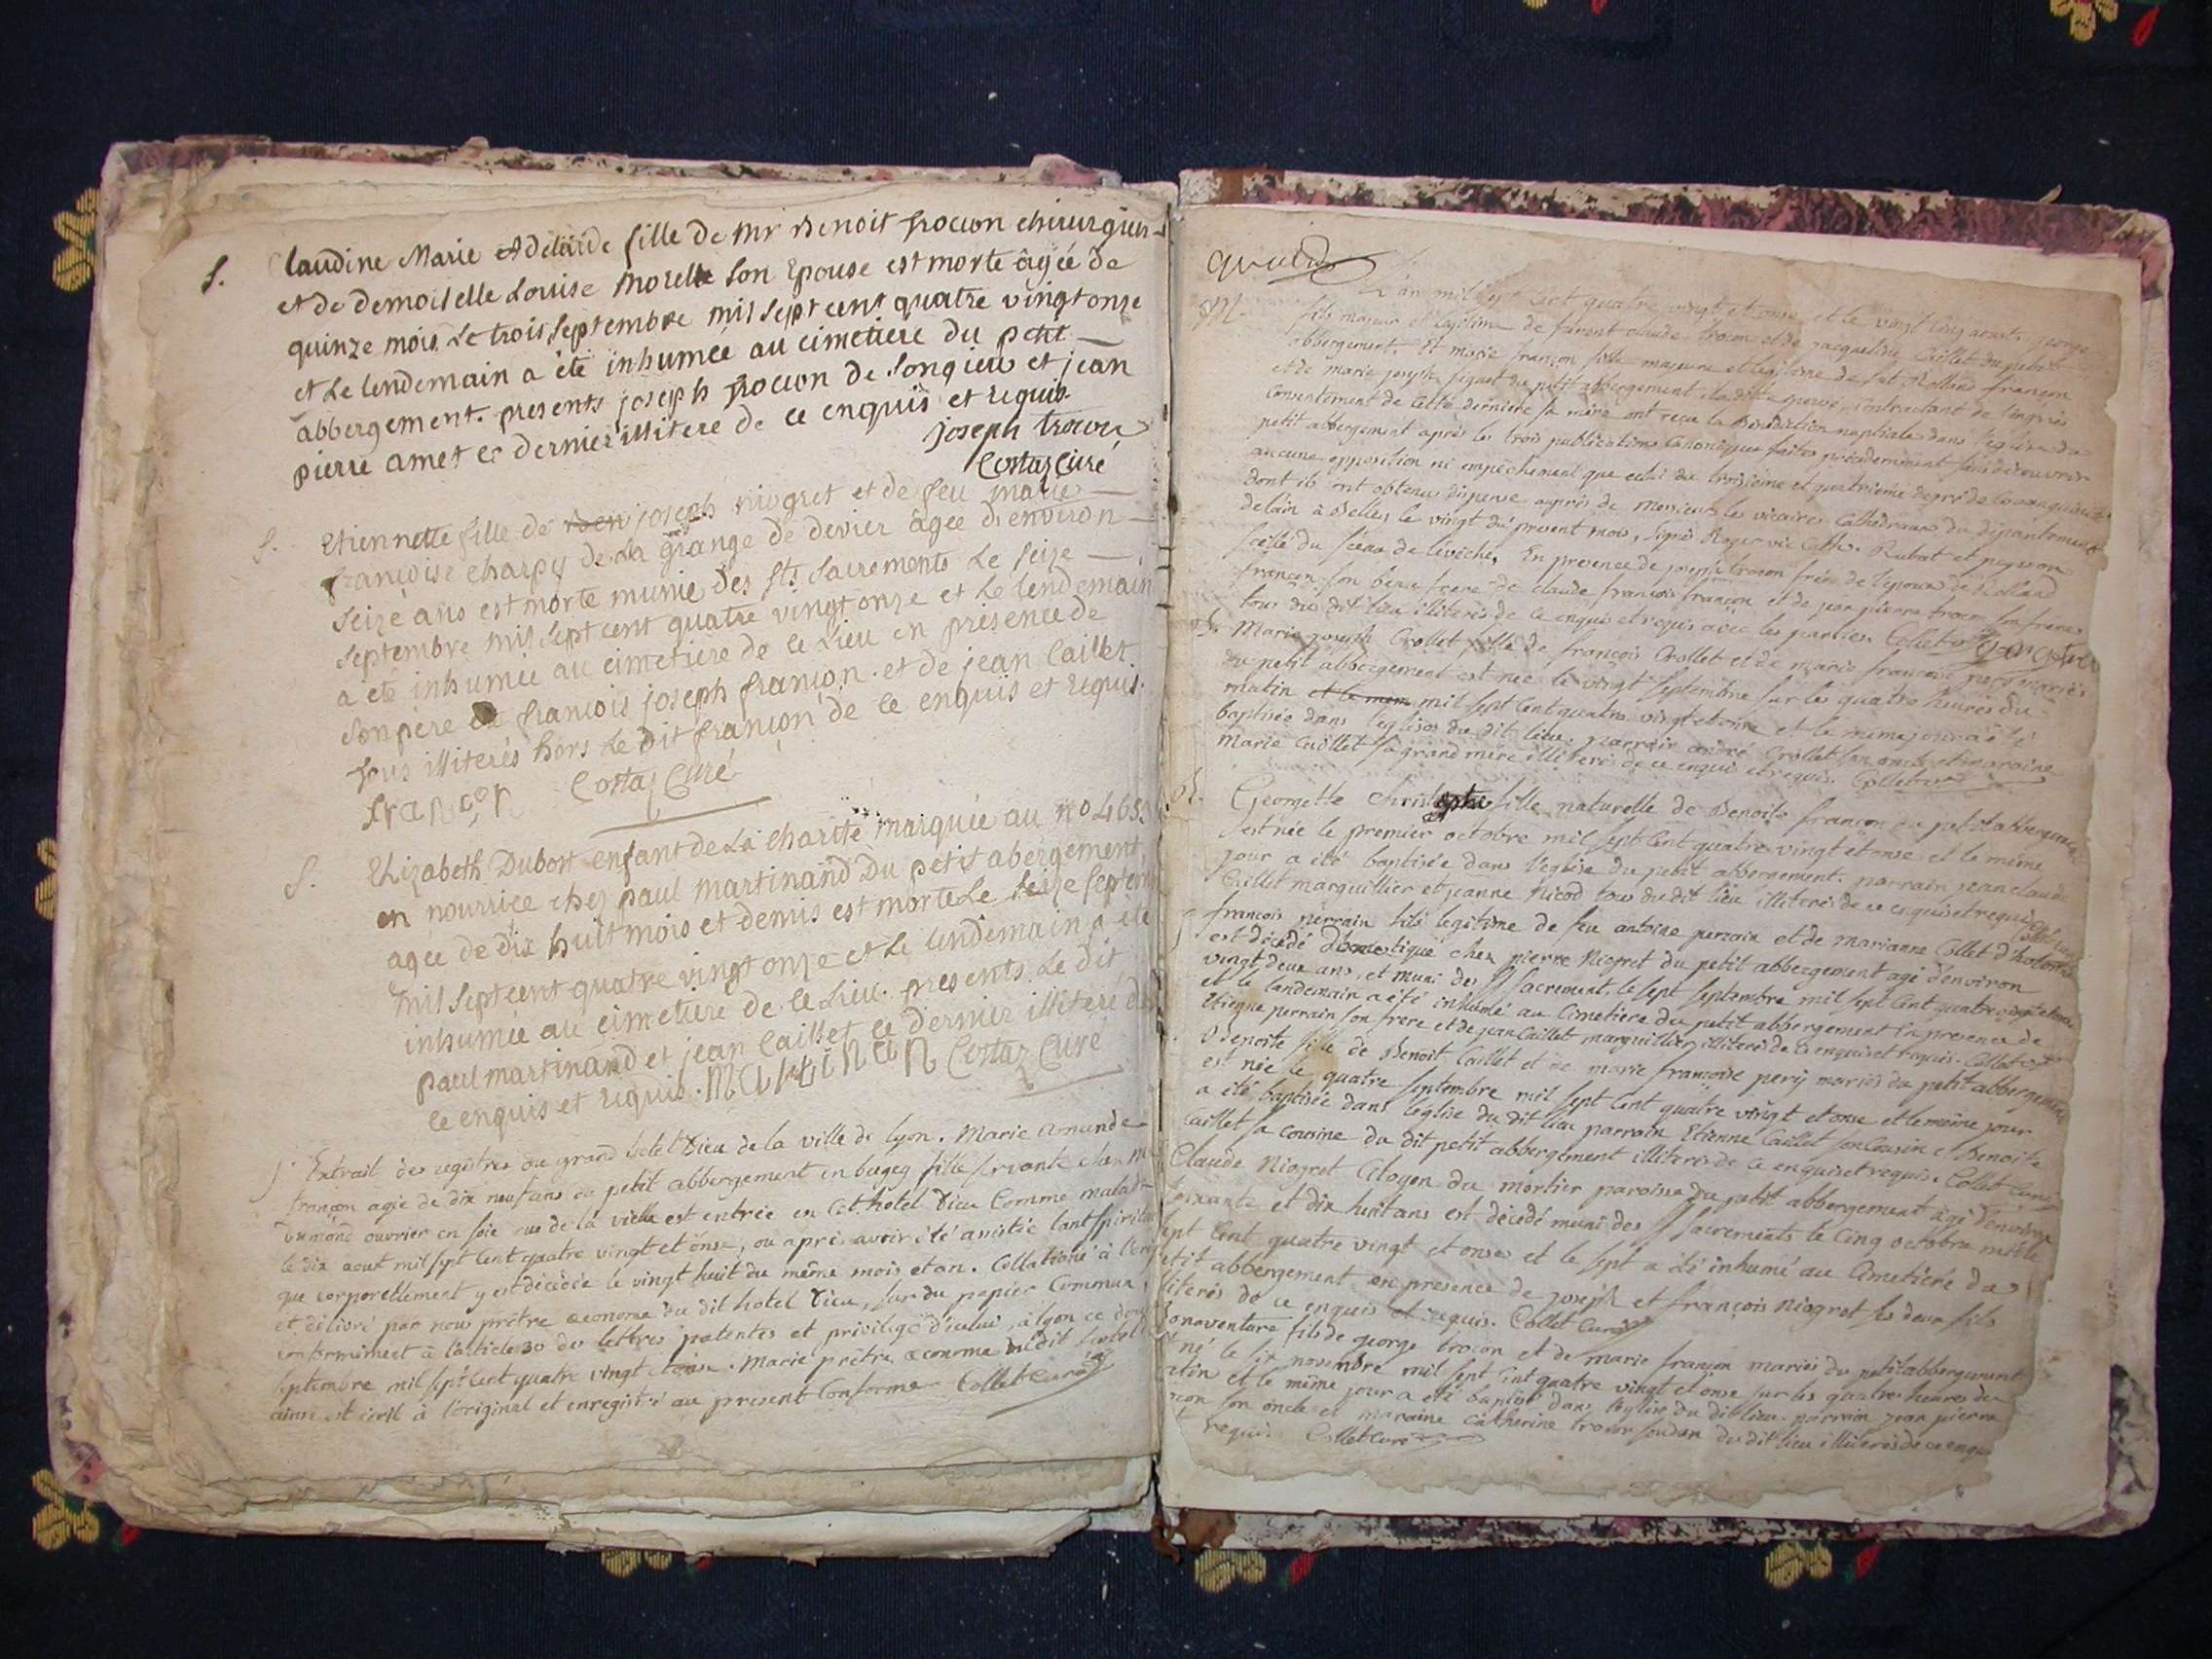 S. Claudine Marie Adelaide fille de Mr Benoit trocon chirurgien
et de demoiselle Louise Morelle son Epouse est morte âgée de
quinze mois Le trois Septembre mil Sept cent quatre vingt onze
et Le lendemain a été inhumée au cimetiere du petit
abbergement. presents joseph trocon de Songieu et jean
pierre amet ce dernier illiteré de ce enquis et requis.
joseph trocon
Costaz Curé
S. Etiennette fille de joseph niogret et de feu marie
françoise charpy de La grange de devier âgée d'environ
Seize ans est morte munie des Sts Sacrements Le Seize
Septembre mil Sept cent quatre vingt onze et Le lendemain
a été inhumée au cimetiere de ce Lieu en présence de
Son père et françois joseph françon. et de jean Caillet
tous illiterés hors Le dit françon de ce enquis et requis.
françon Costaz Curé
S. Elizabeth Dubost enfant de La charité marquée au no 465
en nourrice chez paul Martinand Du petit abergement
agée de dix huit mois et demis est morte Le Seize Septem
mil Sept cent quatre vingt onze et Le lendemain a été
inhumée au cimetiere de ce Lieu. presents Le dit
paul martinand et jean Caillet ce dernier illiteré de
ce enquis et requis. martinan Costaz Curé
Extrait des registres du grand hotel Dieu de la ville de Lyon. Marie
françon agée de dix neuf ans du petit abbergement en bugey fille servante chez
ouvrier en soie rue de la vielle est entrée en cet hotel Dieu Comme malade
le dix aout mil sept Cent quatre vingt et onse, ou après avoir été assistée tant
que corporellement y est décédée le vingt huit du même mois et an. Collationé à
et délivré par nous prêtre oeconome du dit hotel Dieu, sur du papier Commun,
conformément à l'article 30 des lettres patentes et privilege d'icelui, à lyon ce
septembre mil sept Cent quatre vingt et onse. Marie prêtre oeconome
ainsi est écrit à l'original et enregistré au present Conforme Collet Curé
L'an mil sept Cent quatre vingt et onse et le vingt Cinq aout. george
fils majeur et legitime de Claude trocon et de jacqueline Caillet du petit
abbergement. Et marie françon fille majeure et legitime de fut Rolland françon
et de marie joseph du petit abbergement, la ditte Contractant de
Consentement de cette derniere sa mère ont reçu la benediction nuptiale dans l'eglise du
petit abbergement après les trois publications Canoniques faites précédemment sans découvrir
aucune opposition ni empêchement que celui du troisième et quatrième degré de Consanguinité
dont ils ont obtenus dispense auprès de Messieurs les vicaires Cathedraux du département
delain à Belley le vingt du present mois, signé Roger vic Cath. Rubat et
scellé du sceau de l'eveché. En presence de joseph trocon frère de l'epoux de Rolland
françon son beau frere de claude françois françon et de jean pierre trocon son frere
tous du dit lieu illiterés de ce enquis et requis avec les parties. Collet
Marie joseph Crollet fille de françois Crollet et de marie françoise mariés
du petit abbergement est née le vingt Septembre sur les quatre heures du
matin mil sept Cent quatre vingt et onse et le même jour a été
baptisée dans l'eglise du dit lieu. parrain andré Crollet son oncle et maraine
Marie Caillet sa grand mère illiterés de ce enquis et requis. Collet Curé
Georgette fille naturelle de Benoite françon du petit abbergement
est née le premier octobre mil sept Cent quatre vingt et onse et le même
jour a été baptisée dans l'eglise du petit abbergement. parrain jean claude
Caillet marguillier et jeanne Nicod tous du dit lieu illiterés de ce enquis et requis
françois perrain fils legitime de feu antoine perrain et de marianne Collet
est décédé Domestique chez pierre Niogret du petit abbergement agé d'environ
vingt deux ans, et muni des SS sacrement, le sept septembre mil sept Cent quatre vingt et onse
et le landemain a été inhumé au Cimetiere du petit abbergement En presence de
Etienne perrain son frere et de jean Caillet marguillier illiterés de ce enquis et requis. Collet Curé
Benoite fille de Benoit Caillet et de marie françoise pery mariés du petit abbergement
est née le quatre septembre mil sept Cent quatre vingt et onse et le même jour
a été baptisée dans l'eglise du dit lieu parrain Etienne Caillet son Cousin et Benoite
Caillet sa Cousine du dit petit abbergement illiterés de ce enquis et requis. Collet Curé
Claude Niogret Citoyen du mortier paroisse du petit abbergement agé d'environ
soixante et dix huit ans est décédé muni des SS sacrements le Cinq octobre mille
sept Cent quatre vingt et onse et le sept a été inhumé au Cimetiere du
petit abbergement en presence de joseph et françois Niogret ses deux fils
illiterés de ce enquis et requis. Collet Curé
Bonaventure fils de george trocon et de marie françon mariés du petit abbergement
né le six novembre mil sept Cent quatre vingt et onse sur les quatre heures du
matin et le même jour a été baptisé dans l'eglise du dit lieu. parrain jean pierre
trocon son oncle et maraine Catherine trocon du dit lieu illiterés de ce enquis
requis Collet Curé